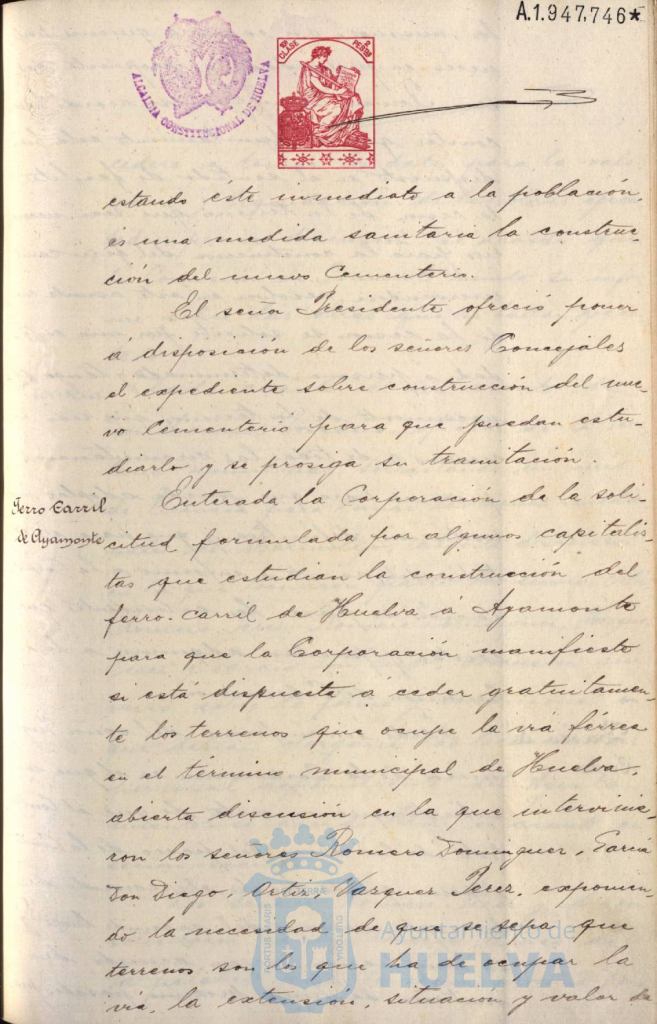 A.1.947,746*
ALCALDIA CONSTITUCIONAL DE HUELVA
10ª CLASE
2 PESETAS
estando éste inmediato a la población,
es una medida sanitaria la construc-
ción del nuevo Cementerio.
El señor Presidente ofreció poner
á disposición de los señores Concejales
el expediente sobre construcción del nue-
vo Cementerio para que puedan estu-
diarlo y se prosiga su tramitación.
Ferro Carril
de Ayamonte
Enterada la Corporación de la soli-
citud formulada por algunos capitalis-
tas que estudian la construcción del
ferro-carril de Huelva á Ayamonte
para que la Corporación manifieste
si está dispuesta á ceder gratuitamen-
te los terrenos que ocupe la vía férrea
en el término municipal de Huelva,
abierta discusión en la que intervinie-
ron los señores Romero Dominguez, García
Don Diego, Ortiz, Vazquez Perez, exponien-
do la necesidad de que se sepa que
terrenos son los que ha de ocupar la
vía, la extensión, situación y valor de
Ayuntamiento de
HUELVA